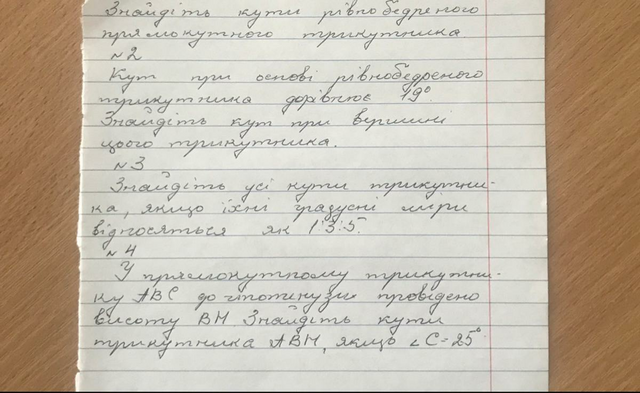 Знайдіть кути рівнобедреного
прямокутного трикутника
№2
Кут при основі рівнобедреного
трикутника дорівнює 19°
Знайдіть кут при вершині
цього трикутника.
№3
Знайдіть усі кути трикутни-
ка, якщо їхні градусні міри
відносяться як 1:3:5.
№4
У прямокутному трикутни-
ку АВС до гіпотенузи проведено
висоту ВН. Знайдіть кути
трикутника АВН, якщо ∠С=25°